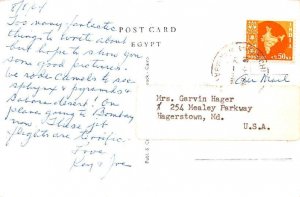 5/8/64
Too many fantastic
things to write about
but hope to show you
some good pictures.
We rode camels to see
sphynx & pyramids &
Sahara desert! On
plane going to Bombay
now. These jet
flights are terrific
Love
Kay & Joe
POST CARD
EGYPT
50
Air Mail
Mrs. Garvin Hager
254 Mealey Parkway
Hagerstown, Md.
U.S.A.